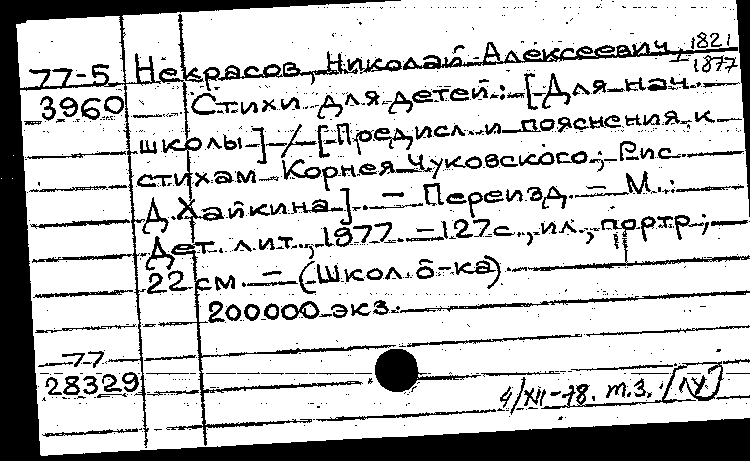 77-5 Некрасов, Николай Алексеевич, 1821-1877
3960 Стихи для детей: [Для нач.
школы] / [Предисл. и пояснения к
стихам Корнея Чуковского; Рис.
Д. Хайкина]. - Переизд. - М.:
Дет. лит., 1977. - 127с., ил., портр.;
22 см. - (Школ. б-ка)
200000 экз.
77
28329
4/XII-78. т.з. [IV]